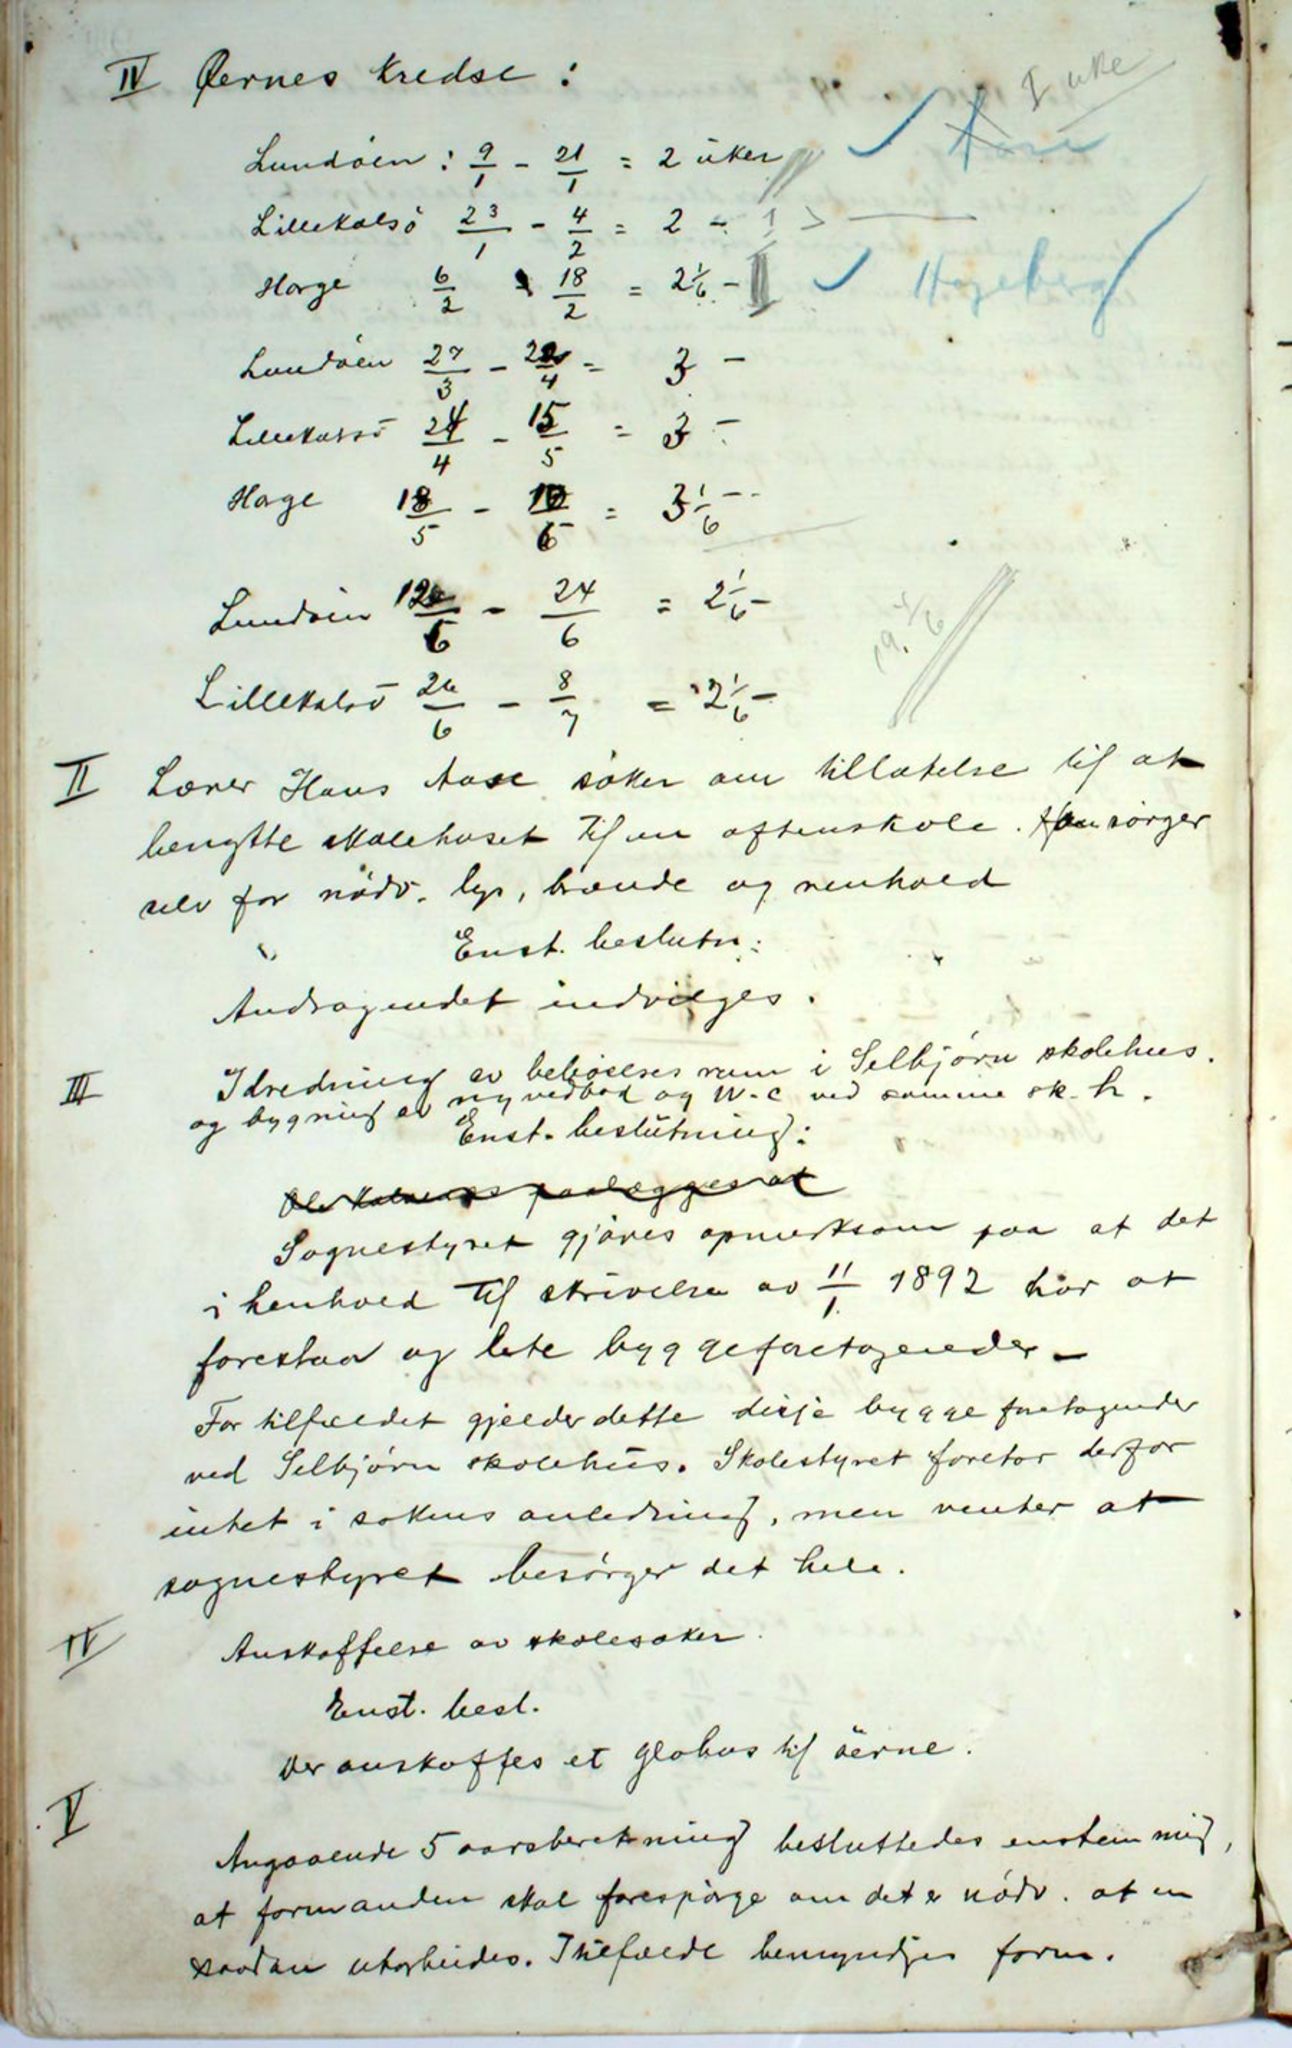 IV Øernes kredse :
I uke
Lundöen : 9/1 - 21/1 = 2 uker Aase
Lillekalsö 23/1 - 4/2 = 2 - 1
Horge 6/2 - 18/2 = 2 1/6 - Hageberg
Lundöen 27/3 - /4 = 3 -
Lillekalsö 24/4 - 15/5 = 3 -
Horge 18/5 - 10/6 = 3 1/6 -
Lundöen /6 - 24/6 = 2 1/6 -
19. 1/6
Lillekalsö 26/6 - 8/7 = 2 1/6 -
II Lærer Hans Aase söker om tillatelse til at
benytte skolehuset til en aftenskole. Han sörger
selv for nödv. lys, brænde og renhold
Enst. beslutn:
Andragendet indvilges.
III Idredning av bekvemm rum i Selbjörn skolehus.
og bygning av ny vedbod og W-c ved samme sk. h.
Enst. beslutning:
paalægges at
Sognestyret gjöres opmerksom paa at det
i henhold til skrivelse av 11/1 1892 har at
forestaa og lete byggeforetagender -
For tilfældet gjelder dette disse bygge foretagender
ved Selbjörn skolehus. Skolestyret foretar derfor
intet i sakens anledning, men venter at
sognestyret besörger det hele.
IV Anskaffelse av skolesaker.
Enst. besl.
Der anskaffes et globus til öerne.
V
Angaaende 5 aarsberetning besluttedes enstemmig,
at formanden skal forespörge om det er nödv. at en
saadan utarbeides. I tilfælde bemyndiges form.